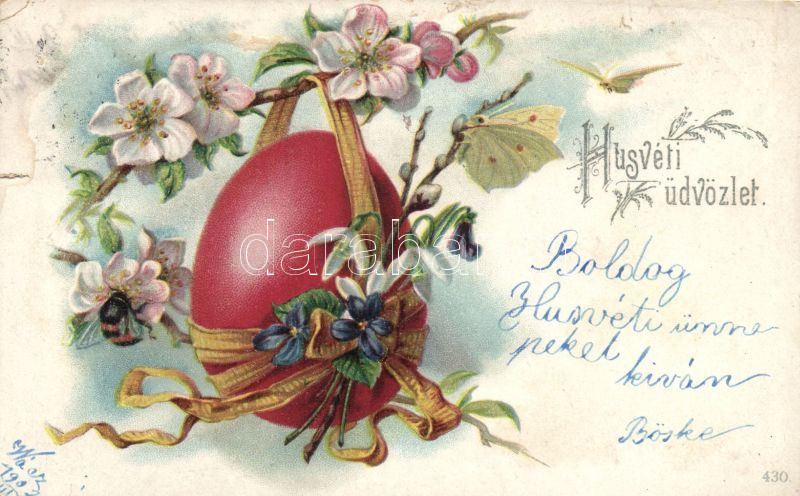 Húsvéti
üdvözlet.
Boldog
Husvéti ünne
peket
kiván
Böske
darabanth
430.